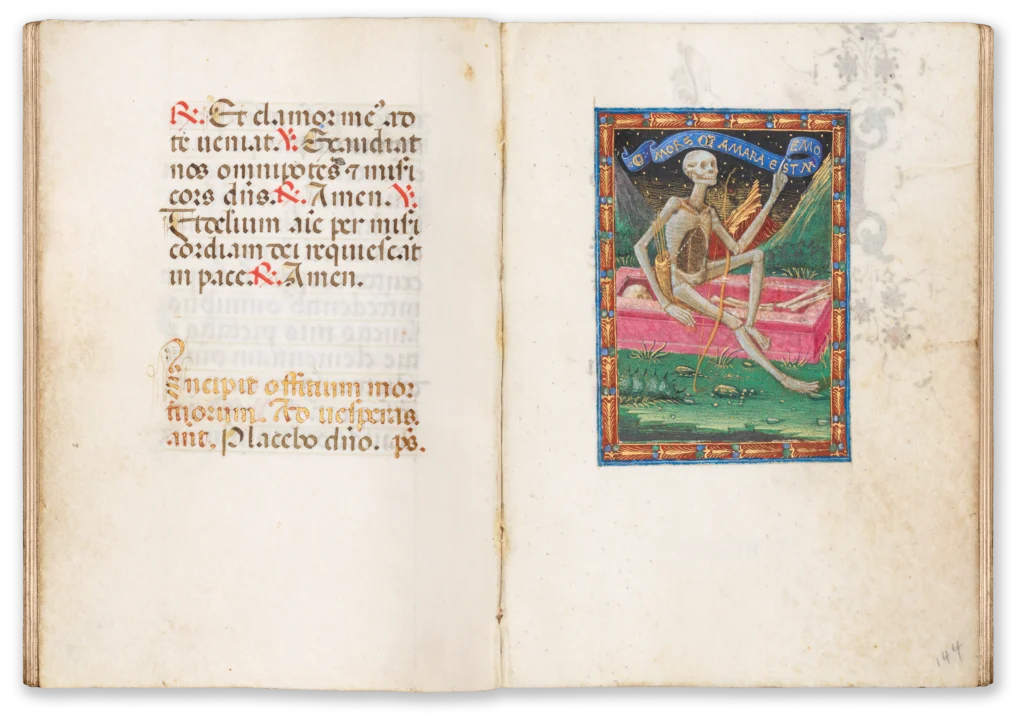 ℟. Et clamor me᷑ ad
te ueniat. ℣. Exaudiat
nos omnipotēs ⁊ miſi
cors dn̄s. ℟. Amen. ℣.
Fidelium aīe per miſi
cordiam dei requieſcāt
in pace. ℟. Amen.
Incipit offitium mor
tuorum. Ad ueſperas.
ant. Placebo dño. ps.
O MORS Q̄ AMARA EST M
EMO
144